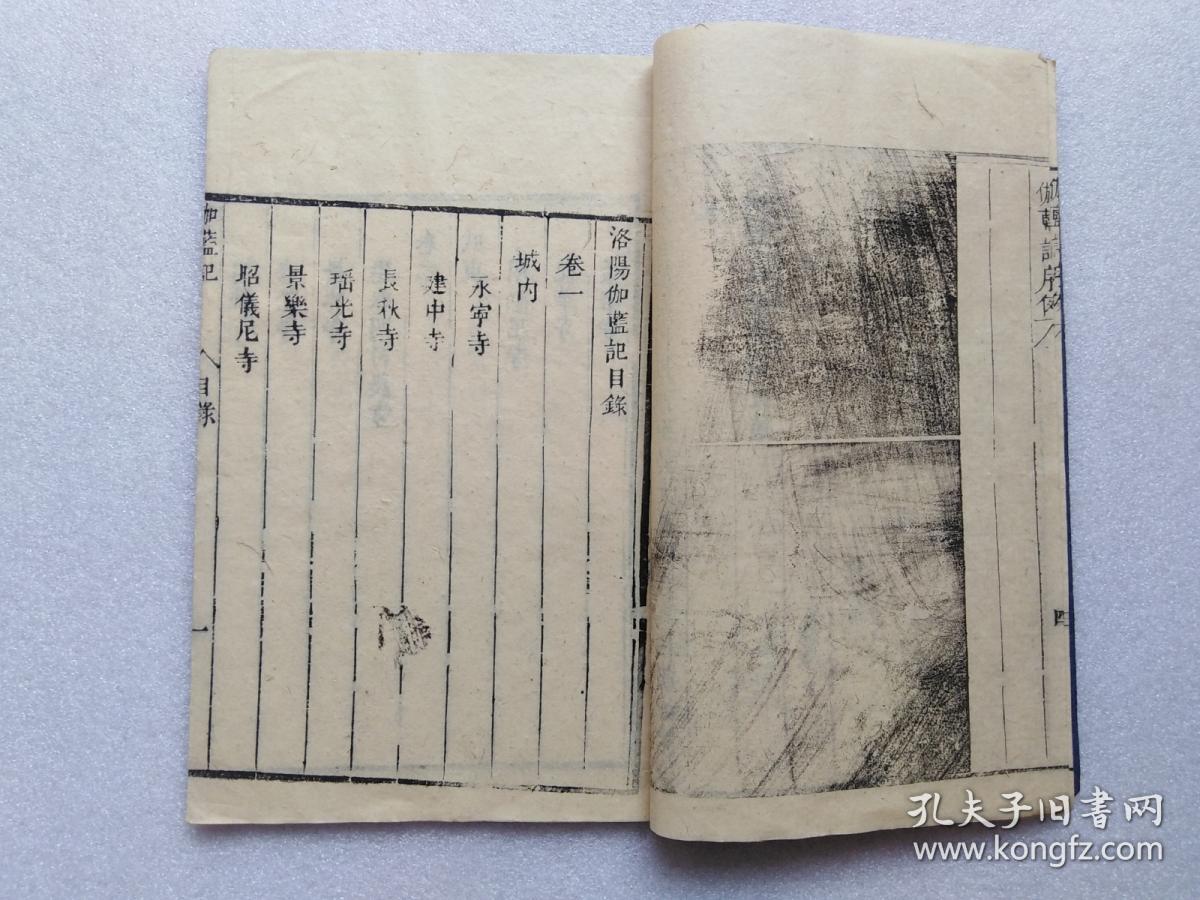 四
洛陽伽藍記目錄
卷一
城內
永寧寺
建中寺
長秋寺
瑤光寺
景樂寺
昭儀尼寺
伽藍記
目錄
一
孔夫子旧书网
www.kongfz.com